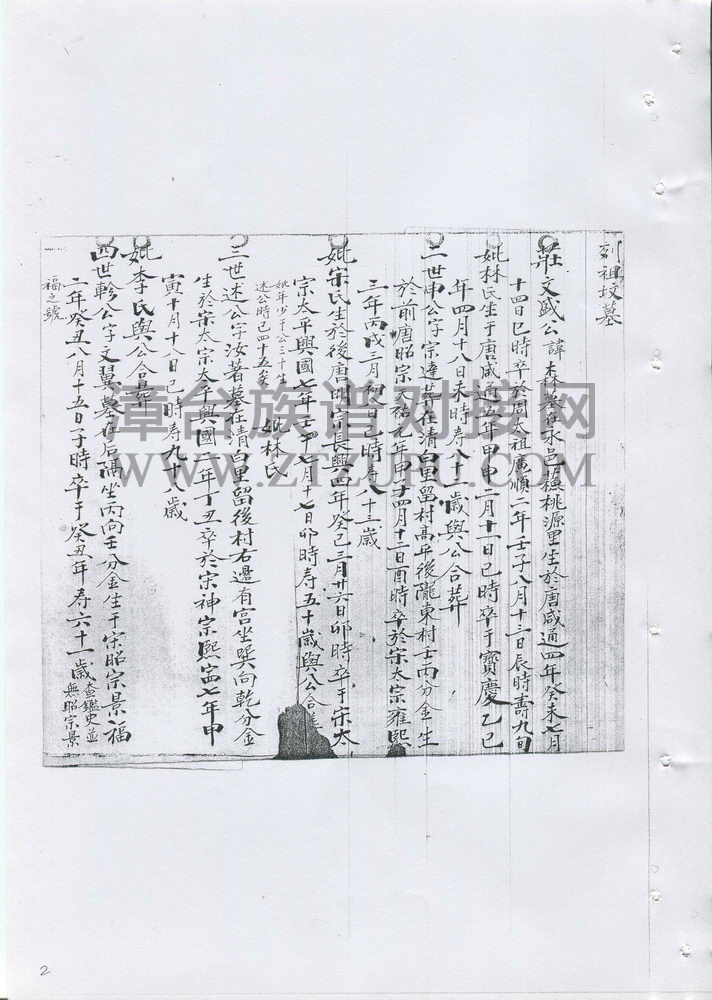 列祖坟墓
莊文盛公諱森墓在永邑蓬桃源里生於唐咸通四年癸未七月
十四日巳時卒於周太祖廣順二年壬子八月十三日辰時壽九旬
妣林氏生于唐咸通年甲申二月十一日巳時卒于寶慶乙巳
年四月十八日未時寿八十一歲與公合葬
二世申公字宗達葬在清白里留村高平後隴東村壬丙分金生
於前唐昭宗天祐元年甲子四月十二日酉時卒於宋太宗雍熙
三年丙戌三月日巳時八十三歲
妣宗氏生於後唐明宗長興四年癸巳三月廿六日卯時卒于宋太
宗太平興國七年壬午七月十七日卯時寿五十歲與公合
妣年少于公三十生
述公時已四十五矣
妣林氏
三世述公字汝著墓在清白里留後村右邊有宫坐巽向乾分金
生於宋太宗太平興國年丁丑卒於宋神宗熙寧七年甲
寅十月十八日巳時寿九十八歲
妣李氏與公合葬
四世軫公字文翼墓在后隔坐丙向壬分金生于宋昭宗景福
二年癸丑八月十五日子時卒于癸丑年寿六十一歲
查鑑史並
無昭宗景
福之號
漳台族谱对接网
WWW.ZTZUPU.COM
2